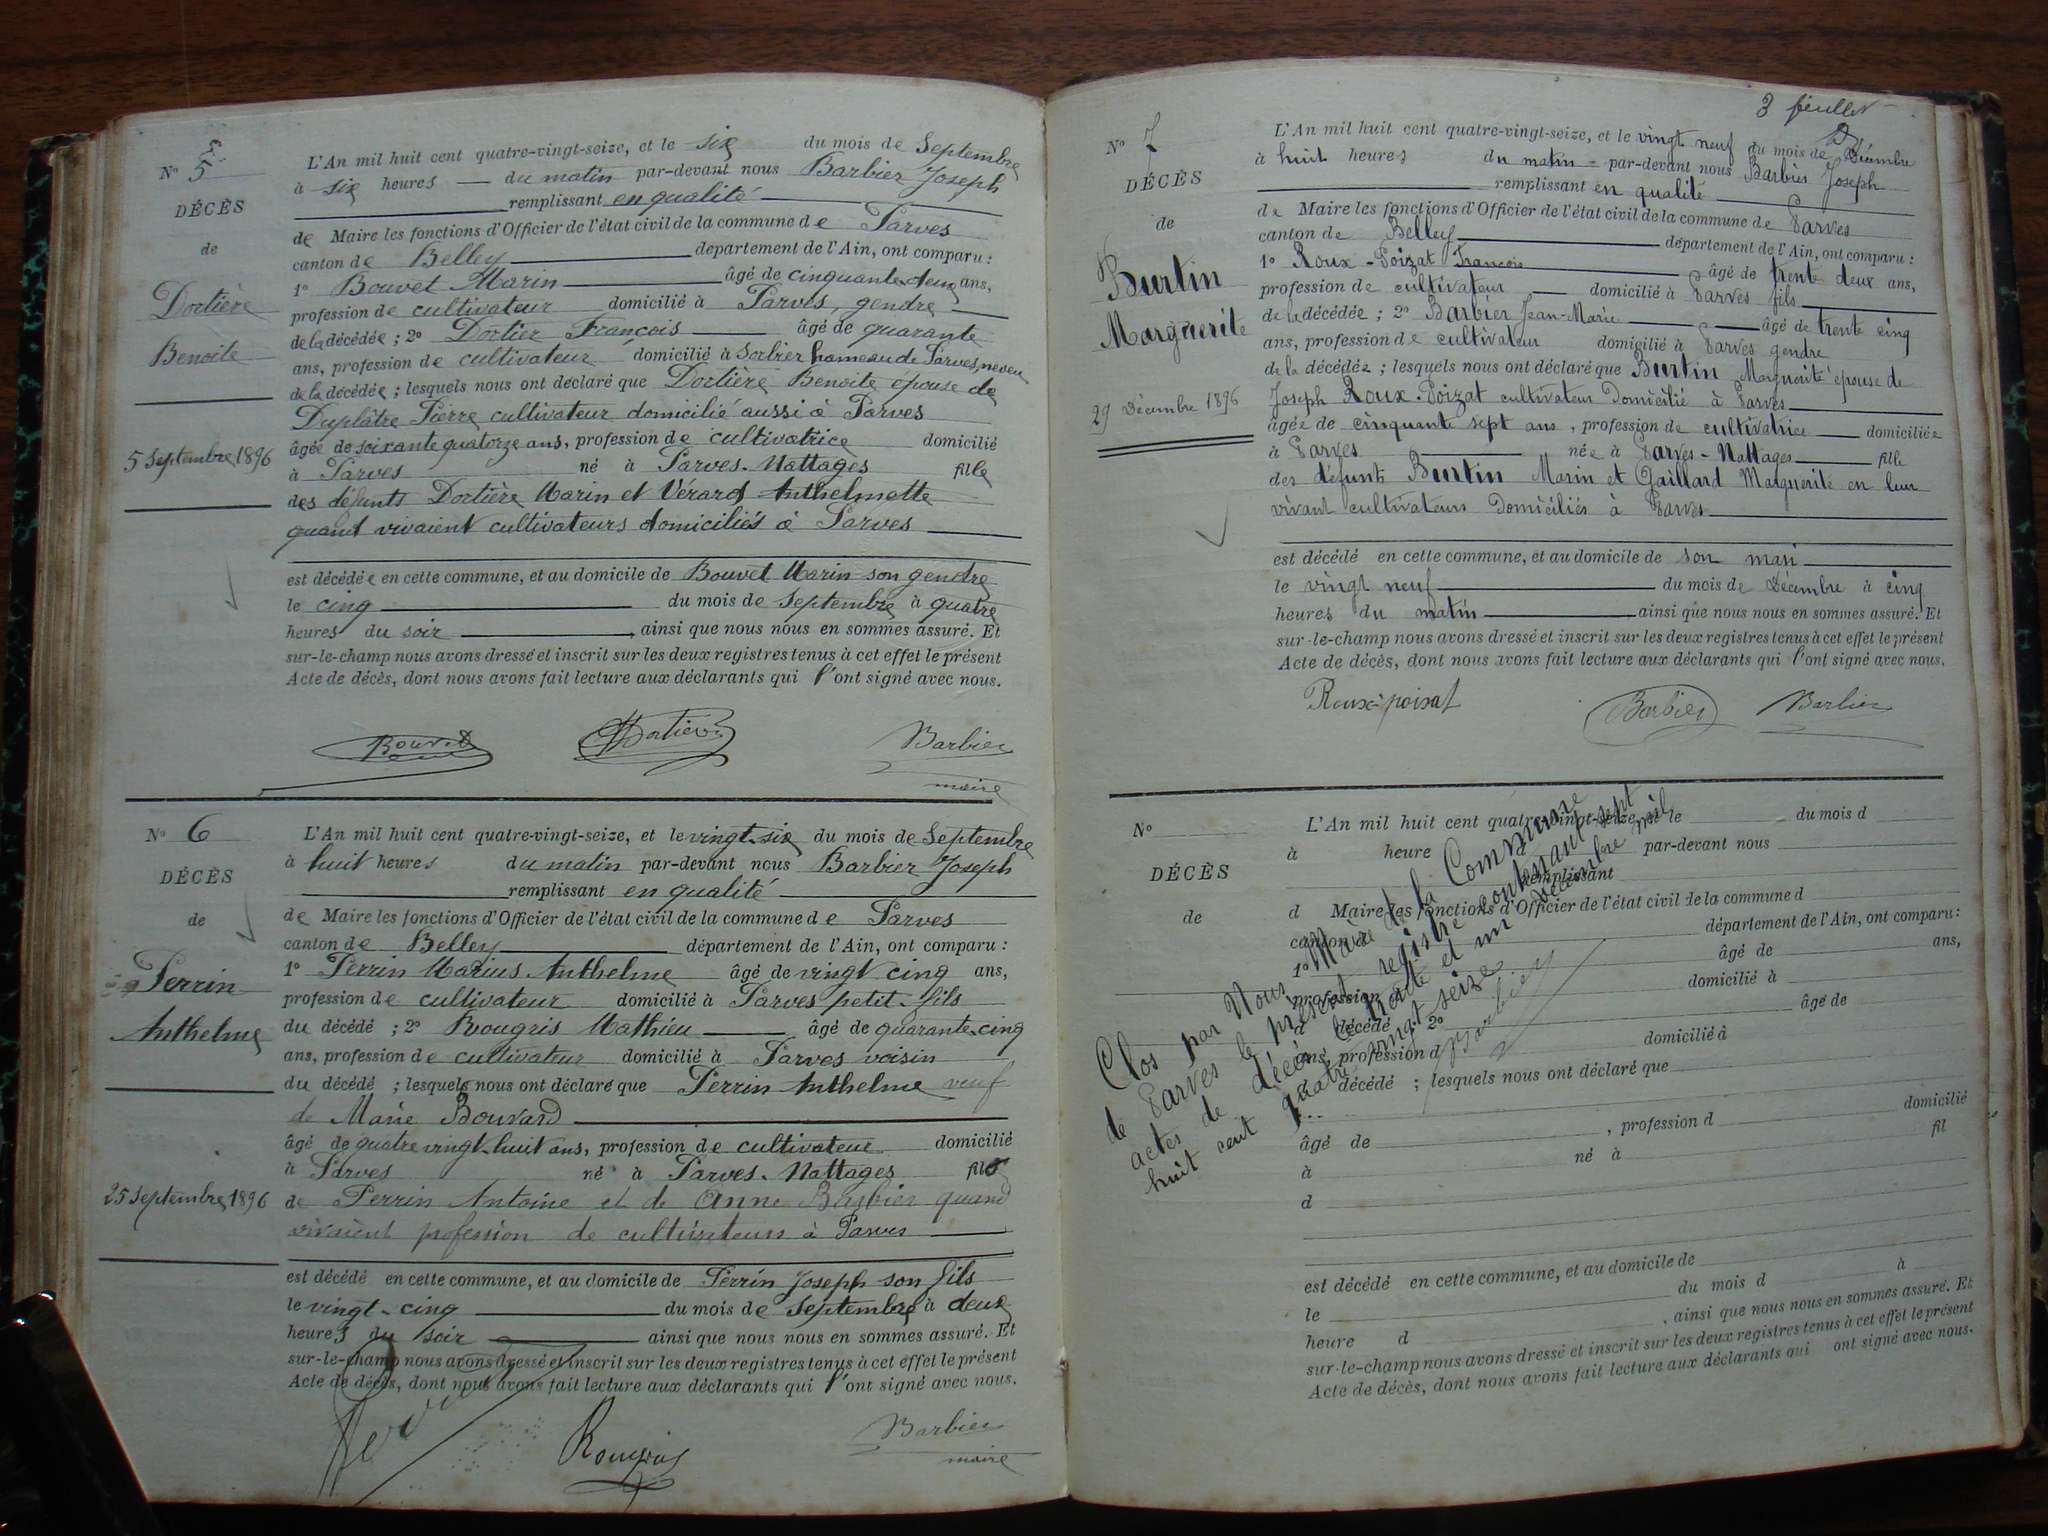 5
N° 5
DÉCÈS
de
Dortière
Benoite
5 Septembre 1896
L'An mil huit cent quatre-vingt-seize, et le six du mois de Septembre
à six heures du matin par-devant nous Barbier Joseph
remplissant en qualité
de Maire les fonctions d'Officier de l'état civil de la commune de Parves
canton de Belley département de l'Ain, ont comparu :
1° Bouvet Marin âgé de cinquante-deux ans,
profession de cultivateur domicilié à Parves, gendre
de la décédée ; 2° Dortier François âgé de quarante
ans, profession de cultivateur domicilié à Sorbier hameau de Parves, neveu
de la décédée ; lesquels nous ont déclaré que Dortière Benoite épouse de
Duplâtre Pierre cultivateur domicilié aussi à Parves
âgée de soixante quatorze ans, profession de cultivatrice domicilié
à Parves né à Parves-Nattages fille
des défunts Dortière Marin et Vérard Anthelmette
quand vivaient cultivateurs domiciliés à Parves
est décédée en cette commune, et au domicile de Bouvet Marin son gendre
le cinq du mois de Septembre à quatre
heures du soir ainsi que nous nous en sommes assuré. Et
sur-le-champ nous avons dressé et inscrit sur les deux registres tenus à cet effet le présent
Acte de décès, dont nous avons fait lecture aux déclarants qui l'ont signé avec nous.
Bouvet Dortier Barbier
maire
N° 6
DÉCÈS
de
Perrin
Anthelme
25 Septembre 1896
L'An mil huit cent quatre-vingt-seize, et le vingt-six du mois de Septembre
à huit heures du matin par-devant nous Barbier Joseph
remplissant en qualité
de Maire les fonctions d'Officier de l'état civil de la commune de Parves
canton de Belley département de l'Ain, ont comparu :
1° Perrin Marius Anthelme âgé de vingt cinq ans,
profession de cultivateur domicilié à Parves petit-fils
du décédé ; 2° Rougris Mathieu âgé de quarante-cinq
ans, profession de cultivateur domicilié à Parves voisin
du décédé ; lesquels nous ont déclaré que Perrin Anthelme veuf
de Marie Bouvard
âgé de quatre vingt-huit ans, profession de cultivateur domicilié
à Parves né à Parves-Nattages fils
de Perrin Antoine et de Anne Barbier quand
vivaient profession de cultivateurs à Parves
est décédé en cette commune, et au domicile de Perrin Joseph son fils
le vingt-cinq du mois de Septembre à deux
heures du soir ainsi que nous nous en sommes assuré. Et
sur-le-champ nous avons dressé et inscrit sur les deux registres tenus à cet effet le présent
Acte de décès, dont nous avons fait lecture aux déclarants qui l'ont signé avec nous.
Rougris Barbier
maire
3 feuillet
N° 7
DÉCÈS
de
Burtin
Marguerite
29 Décembre 1896
L'An mil huit cent quatre-vingt-seize, et le vingt neuf du mois de Décembre
à huit heures du matin par-devant nous Barbier Joseph
remplissant en qualité
de Maire les fonctions d'Officier de l'état civil de la commune de Parves
canton de Belley département de l'Ain, ont comparu :
1° Roux-Poizat François âgé de trente deux ans,
profession de cultivateur domicilié à Parves fils
de la décédée ; 2° Barbier Jean-Marie âgé de trente cinq
ans, profession de cultivateur domicilié à Parves gendre
de la décédée ; lesquels nous ont déclaré que Burtin Marguerite épouse de
Joseph Roux-Poizat cultivateur Domicilié à Parves
âgée de cinquante sept ans, profession de cultivatrice domiciliée
à Parves née à Parves-Nattages fille
des défunts Burtin Marin et Gaillard Marguerite en leur
vivant cultivateurs Domiciliés à Parves
est décédé en cette commune, et au domicile de son mari
le vingt neuf du mois de Décembre à cinq
heures du matin ainsi que nous nous en sommes assuré. Et
sur-le-champ nous avons dressé et inscrit sur les deux registres tenus à cet effet le présent
Acte de décès, dont nous avons fait lecture aux déclarants qui l'ont signé avec nous.
Roux-poizat Barbier Barbier
N°
DÉCÈS
de
L'An mil huit cent quatre-vingt-seize, et le du mois d
à heure par-devant nous
remplissant
d Maire les fonctions d'Officier de l'état civil de la commune d
canton d département de l'Ain, ont comparu :
1° âgé de ans,
profession d domicilié à
d décédé ; 2° âgé de
ans, profession d domicilié à
d décédé ; lesquels nous ont déclaré que
âgé de , profession d domicilié
à né à fil
d
est décédé en cette commune, et au domicile de
le du mois d à
heure d , ainsi que nous nous en sommes assuré. Et
sur-le-champ nous avons dressé et inscrit sur les deux registres tenus à cet effet le présent
Acte de décès, dont nous avons fait lecture aux déclarants qui ont signé avec nous.
Clos par Nous Maire de la Commune
de Parves le présent registre contenant sept
actes de décès, le trente et un décembre mil
huit cent quatre vingt seize
Barbier